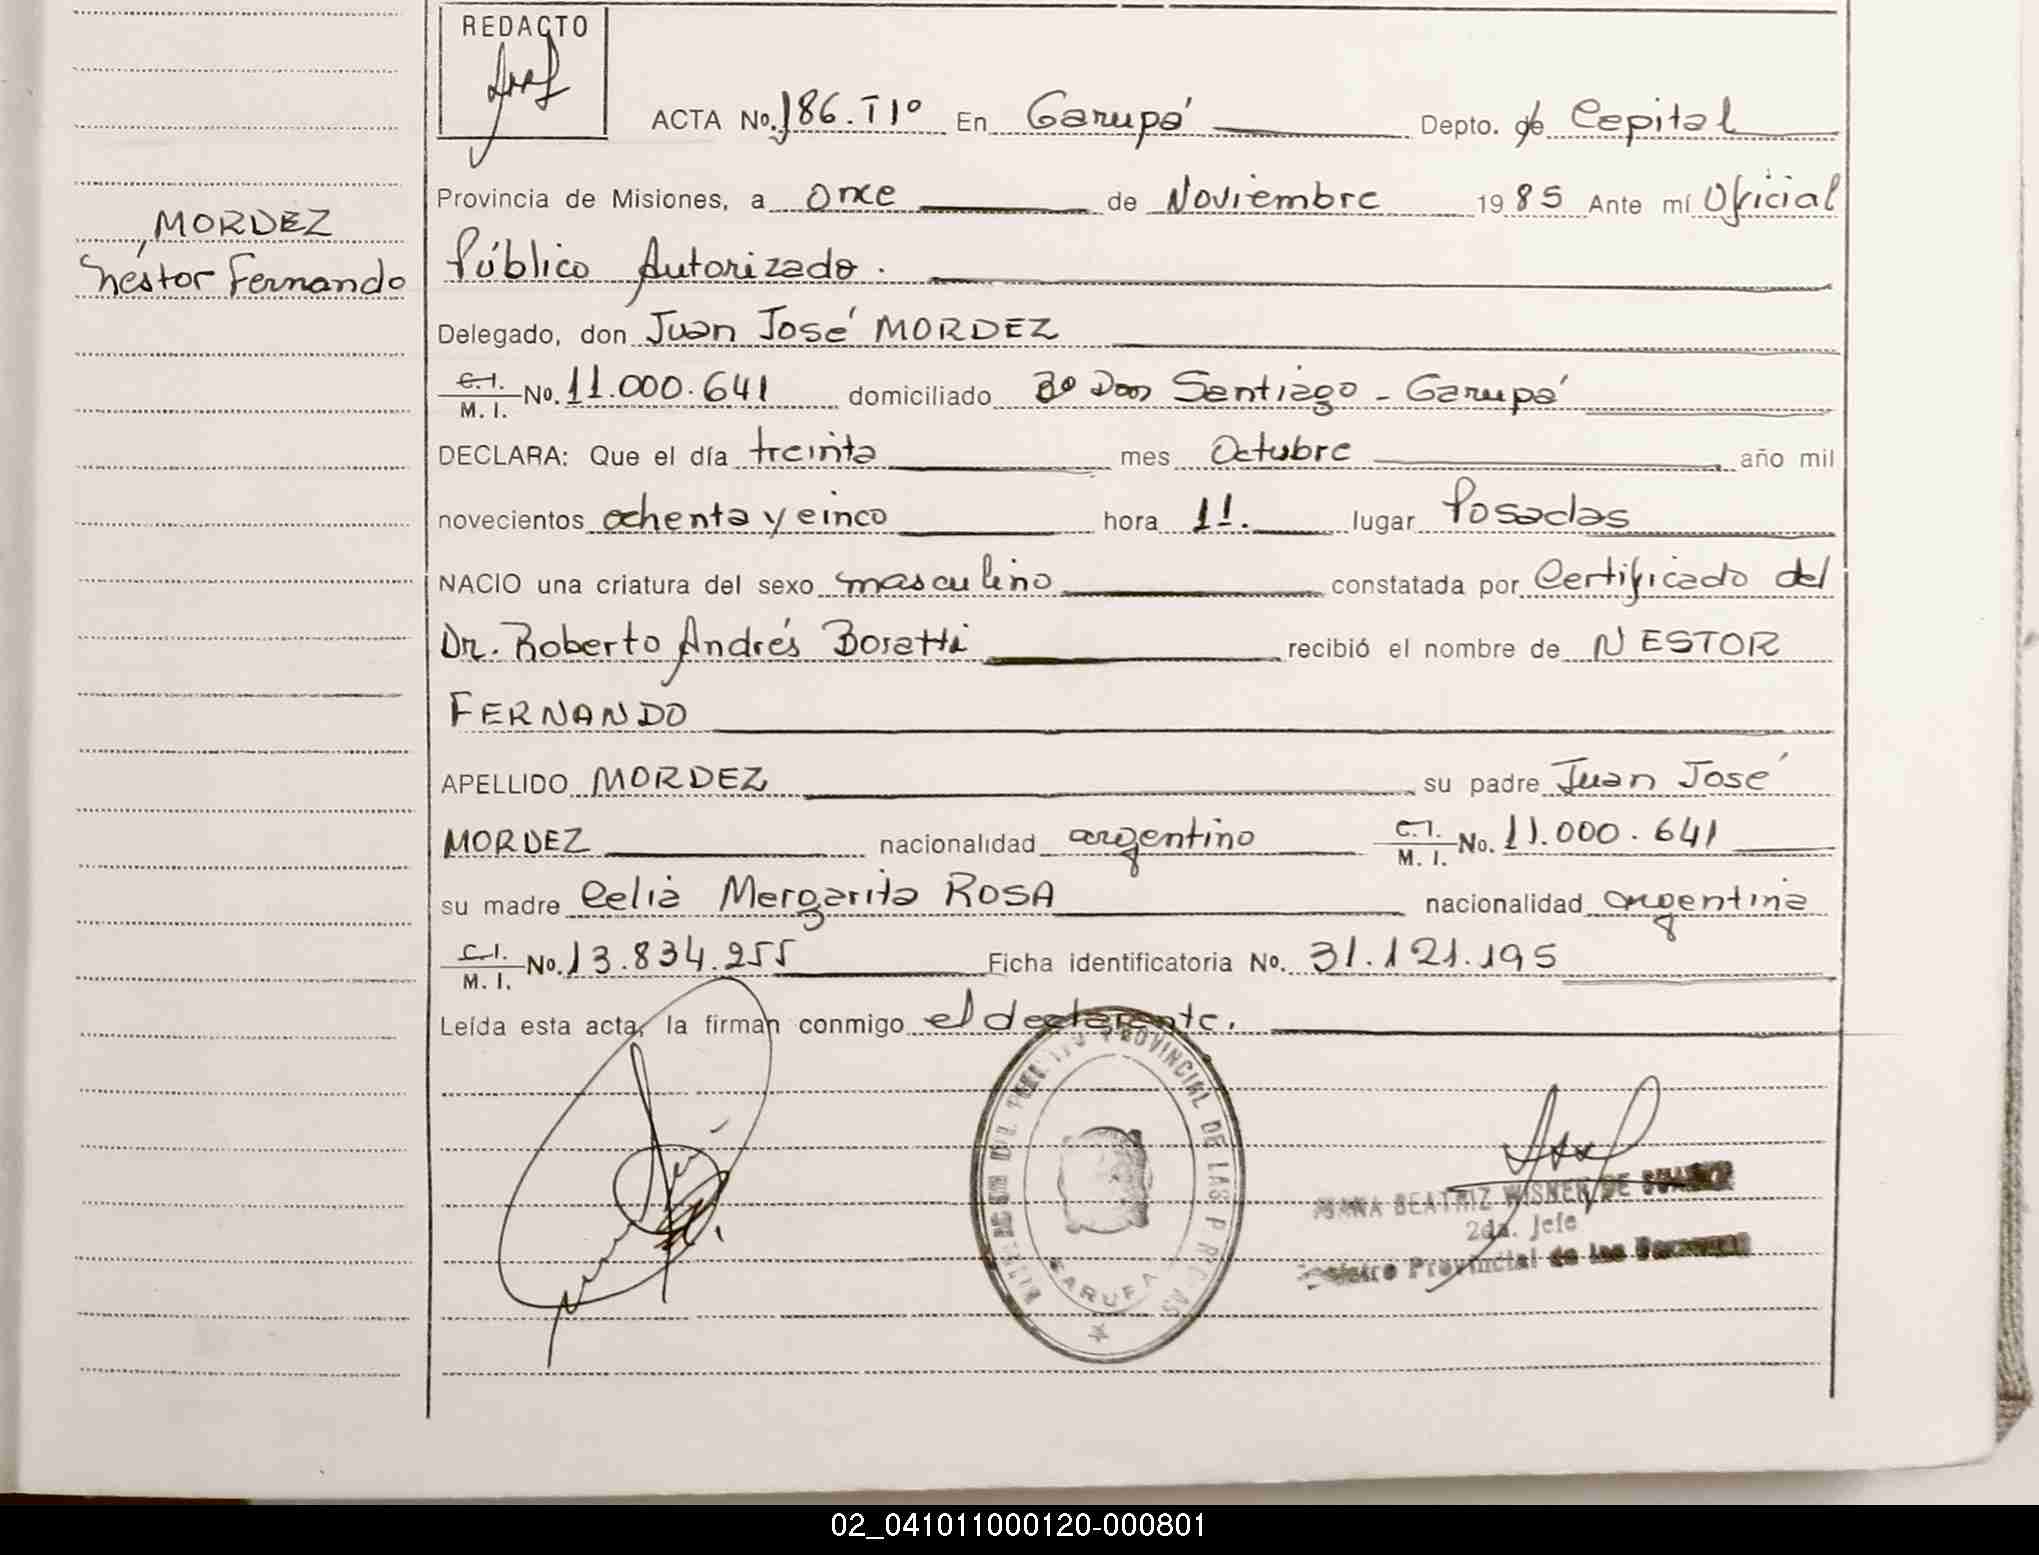 REDACTO
ACTA No. 186. T1º En Garupá Depto. de Capital
Provincia de Misiones, a once de Noviembre 1985 Ante mí Oficial
Público Autorizado.
MORDEZ
Néstor Fernando
Delegado, don Juan José MORDEZ
C.I. M. I. No. 11.000.641 domiciliado Bº Don Santiago - Garupá
DECLARA: Que el día treinta mes Octubre año mil
novecientos ochenta y cinco hora 11. lugar Posadas
NACIO una criatura del sexo masculino constatada por Certificado del
Dr. Roberto Andrés Boratti recibió el nombre de NESTOR
FERNANDO
APELLIDO MORDEZ su padre Juan José
MORDEZ nacionalidad argentino C.I. M. I. No. 11.000.641
su madre Celia Margarita ROSA nacionalidad argentina
C.I. M. I. No. 13.834.255 Ficha identificatoria No. 31.121.195
Leída esta acta, la firman conmigo el declarante.
PROVINCIAL DE LAS
GARUPA
BEATRIZ WISNER DE
2da. Jefe
Provincial de las
02_041011000120-000801